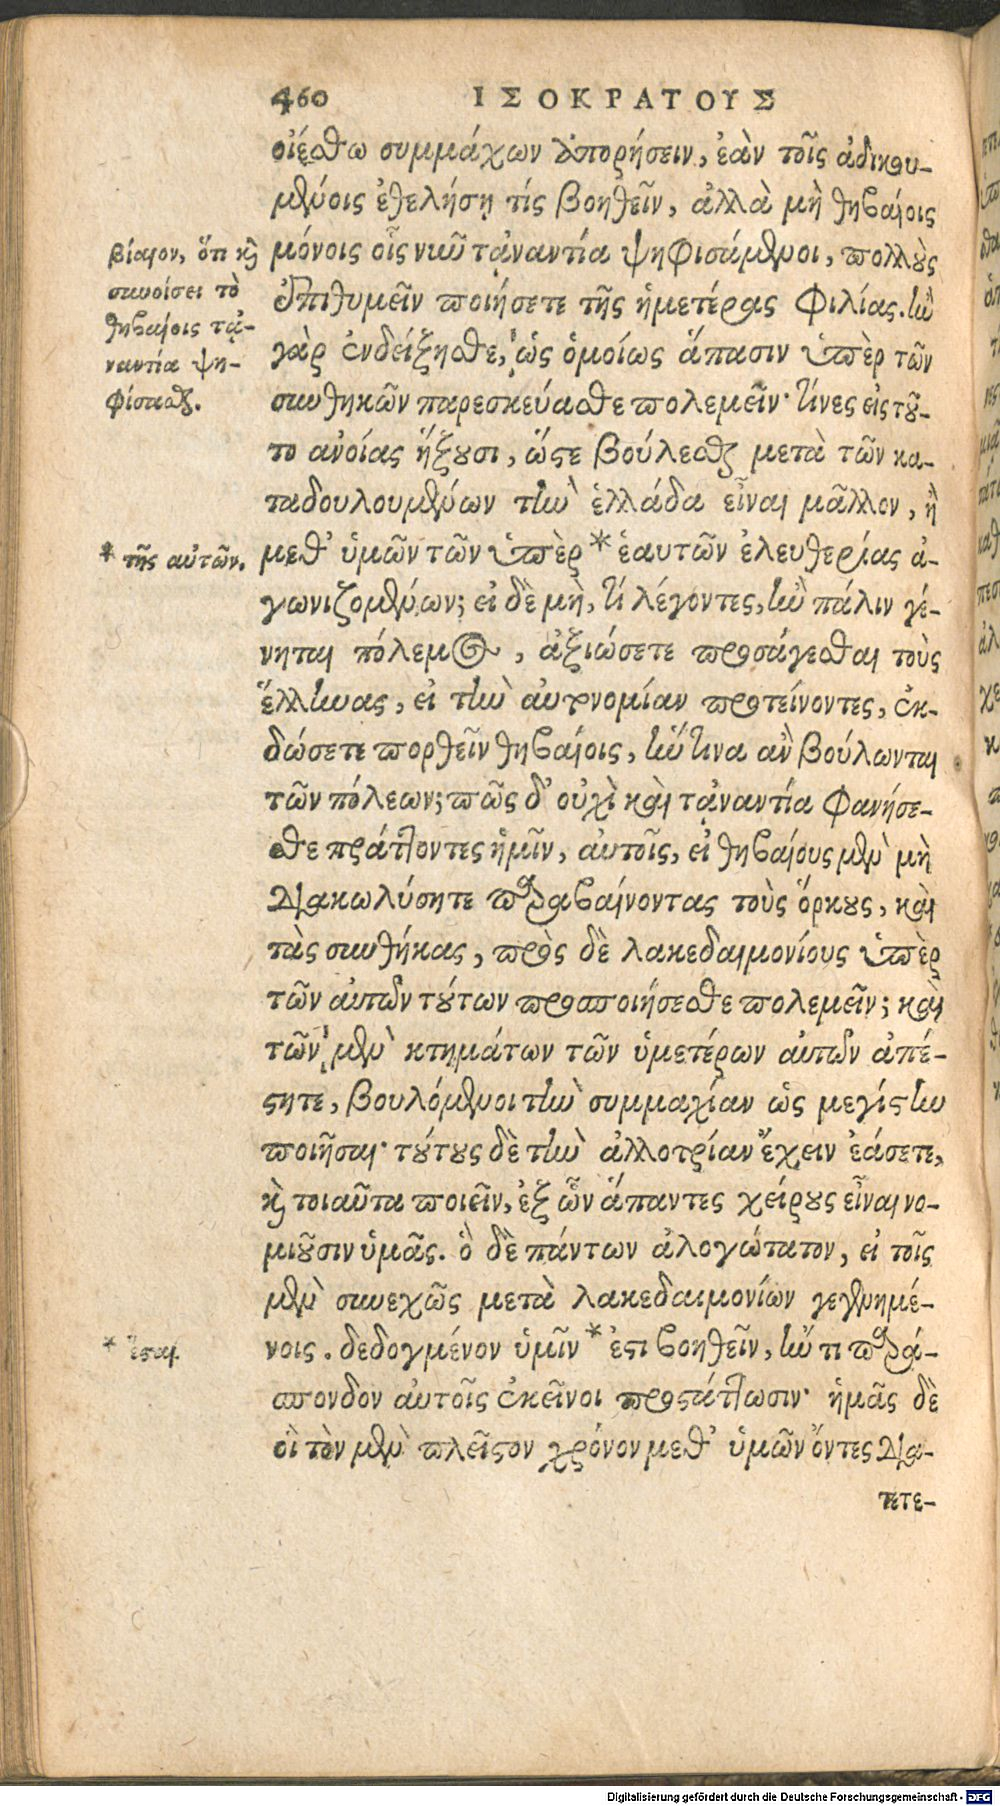 460 ΙΣΟΚΡΑΤΟΥΣ
οἰέσθω συμμάχων ἀπορήσειν, ἐὰν τοῖς ἀδικου-
μένοις ἐθελήσῃ τίς βοηθεῖν, ἀλλὰ μὴ θηβαίοις
μόνοις οἷς νιῦ τἀναντία ψηφισάμενοι, πολλοὺς
ἐπιθυμεῖν ποιήσετε τῆς ἡμετέρας φιλίας. ἢν
γὰρ ἐνδείξησθε, ὡς ὁμοίως ἅπασιν ὑπὲρ τῶν
συνθηκῶν παρεσκεύασθε πολεμεῖν· τίνες εἰς τοῦ-
το ἀνοίας ἥξουσι, ὥστε βούλεσθαι μετὰ τῶν κα-
ταδουλουμένων τὴν ἑλλάδα εἶναι μᾶλλον, ἢ
μεθ' ὑμῶν τῶν ὑπὲρ * ἑαυτῶν ἐλευθερίας ἀ-
γωνιζομένων; εἰ δὲ μὴ, τί λέγοντες, ἢν πάλιν γέ-
νηται πόλεμος, ἀξιώσετε προσάγεσθαι τοὺς
ἕλληνας, εἰ τὴν αὐτονομίαν προτείνοντες, ἐκ-
δώσετε πορθεῖν θηβαίοις, ἥντινα ἂν βούλωνται
τῶν πόλεων; πῶς δ' οὐχὶ καὶ τἀναντία φανήσε-
σθε πράττοντες ἡμῖν, αὐτοῖς, εἰ θηβαίους μὲν μὴ
διακωλύσητε παραβαίνοντας τοὺς ὅρκους, καὶ
τὰς συνθήκας, πρὸς δὲ λακεδαιμονίους ὑπὲρ
τῶν αὐτῶν τούτων προσποιήσεσθε πολεμεῖν; καὶ
τῶν μὲν κτημάτων τῶν ὑμετέρων αὐτῶν ἀπέ-
στητε, βουλόμενοι τὴν συμμαχίαν ὡς μεγίστην
ποιῆσαι· τούτους δὲ τὴν ἀλλοτρίαν ἔχειν ἐάσετε,
καὶ τοιαῦτα ποιεῖν, ἐξ ὧν ἅπαντες χείρους εἶναι νο-
μιοῦσιν ὑμᾶς. ὃ δὲ πάντων ἀλογώτατον, εἰ τοῖς
μὲν συνεχῶς μετὰ λακεδαιμονίων γεγενημέ-
νοις. δεδογμένον ὑμῖν * ἐστι βοηθεῖν, ἤν τι παρά-
σπονδον αὐτοῖς ἐκεῖνοι προστάττωσιν· ἡμᾶς δὲ
οἳ τὸν μὲν πλεῖστον χρόνον μεθ' ὑμῶν ὄντες δια-
τετε-
βίαιον, ὅτι καὶ
συνοίσει τὸ
θηβαίοις τἀ-
ναντία ψη-
φίσασθαι.
* τῆς αὑτῶν.
* ἔσται
Digitalisierung gefördert durch die Deutsche Forschungsgemeinschaft - DFG